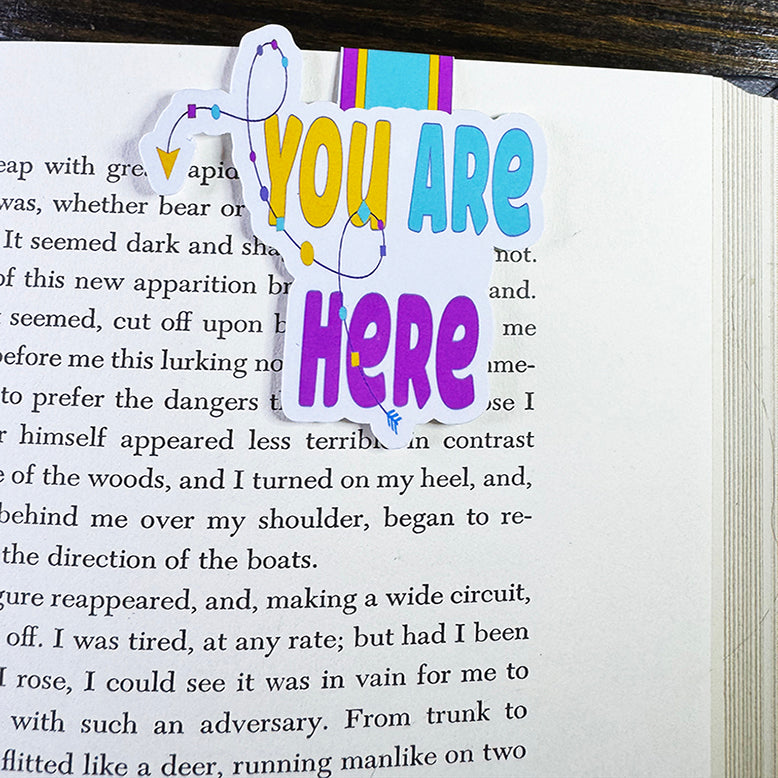 YOU ARE
HERE
eap with gre apid
was, whether bear or
It seemed dark and sha not.
of this new apparition br and.
seemed, cut off upon b me
before me this lurking no me-
to prefer the dangers t ose I
r himself appeared less terrible in contrast
e of the woods, and I turned on my heel, and,
behind me over my shoulder, began to re-
the direction of the boats.
gure reappeared, and, making a wide circuit,
off. I was tired, at any rate; but had I been
I rose, I could see it was in vain for me to
with such an adversary. From trunk to
flitted like a deer, running manlike on two